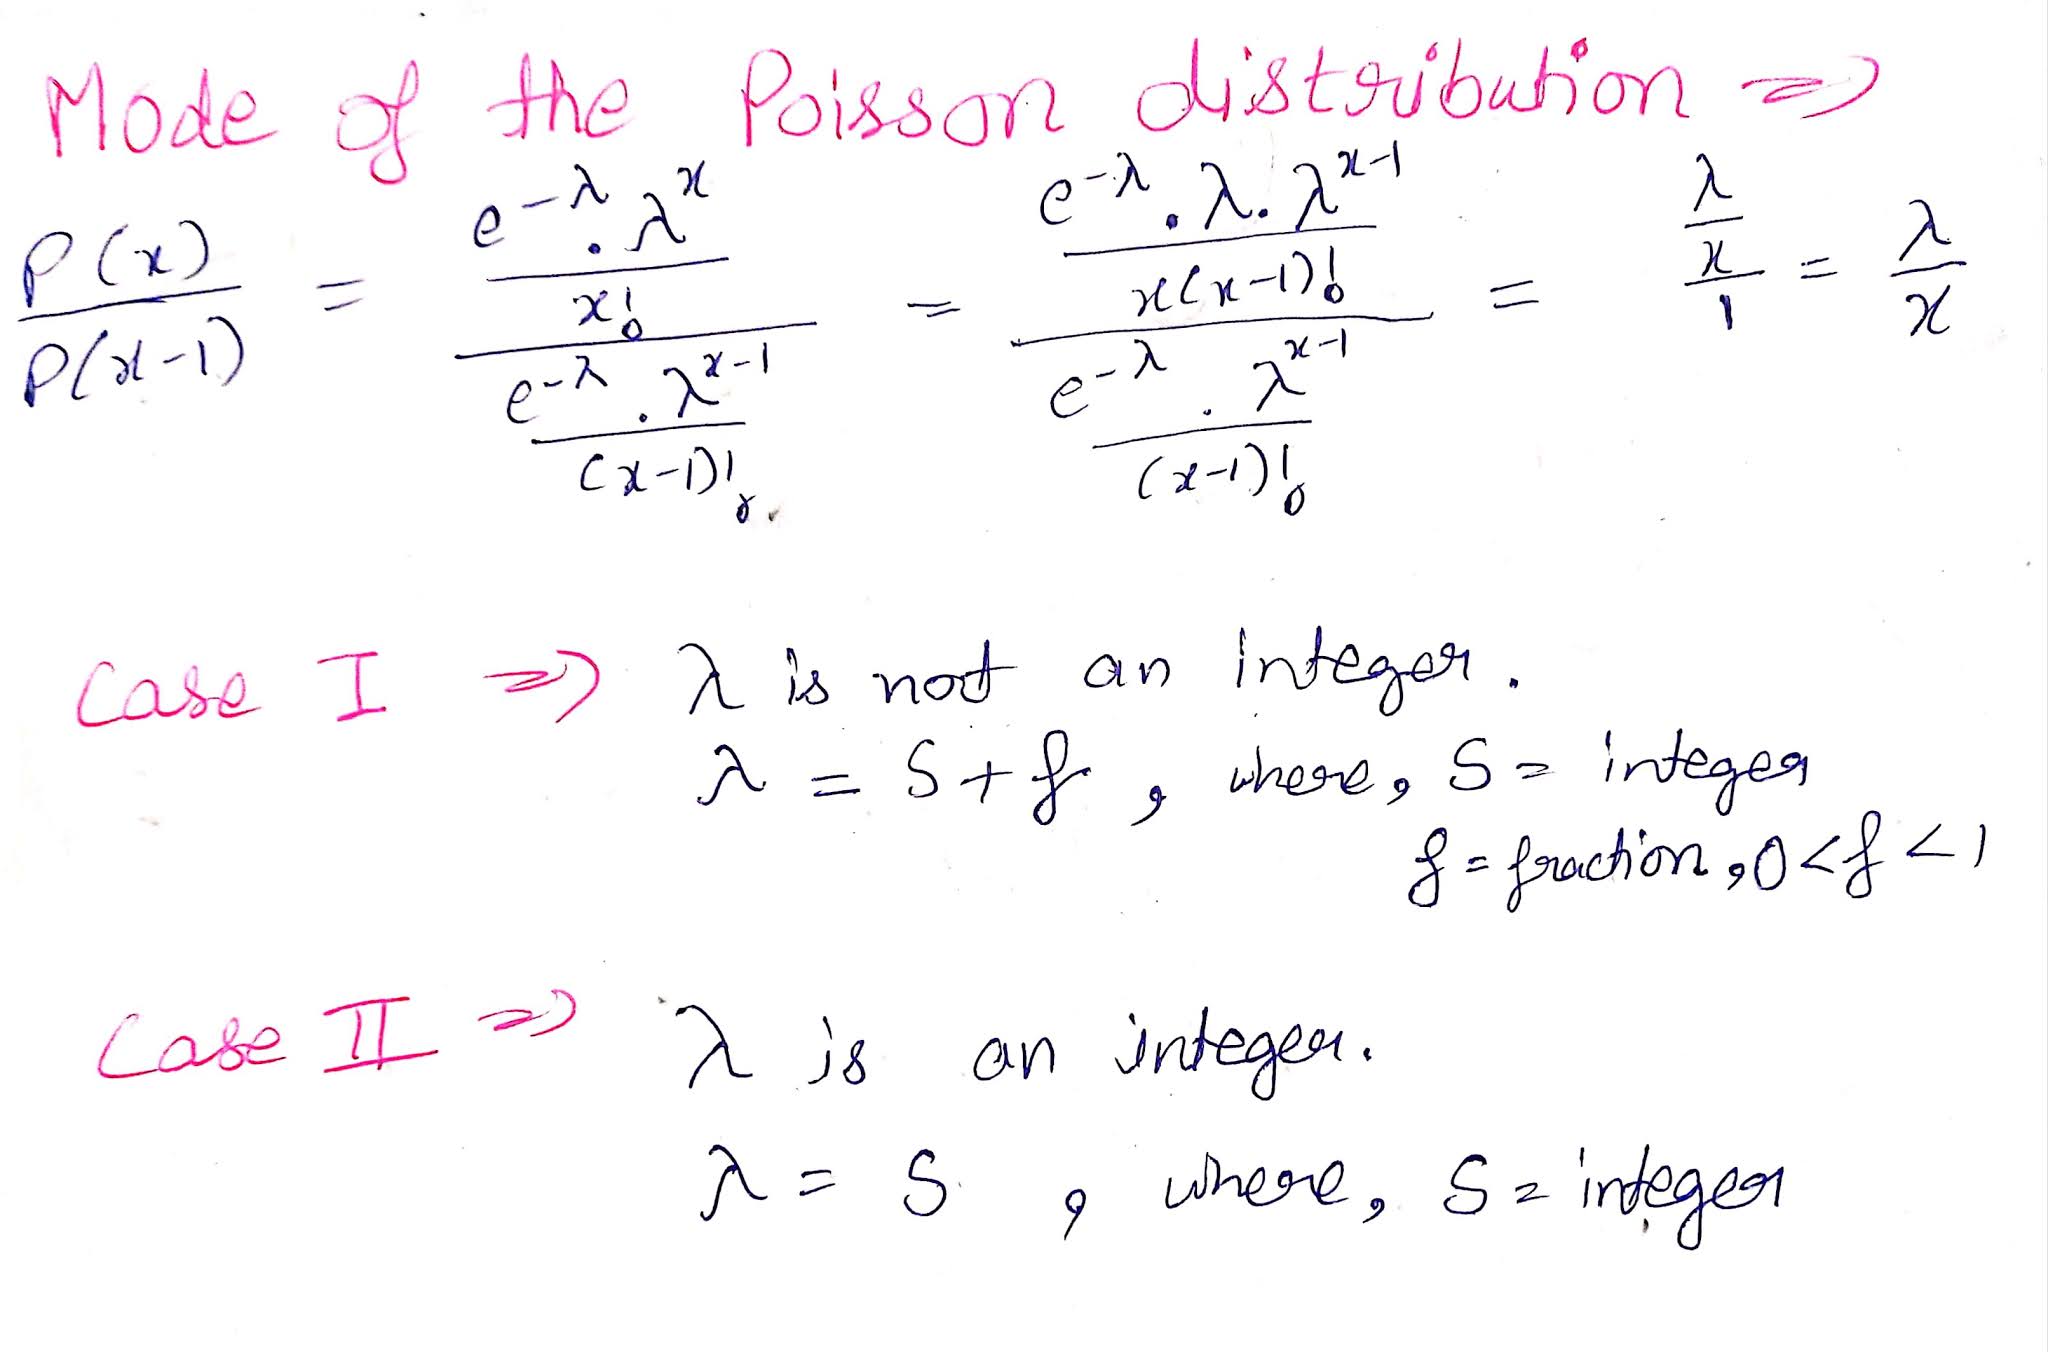 Mode of the Poisson distribution ⇒
P(x)/P(x-1) = (e^-λ . λ^x / x!) / (e^-λ . λ^x-1 / (x-1)!) = (e^-λ . λ . λ^x-1 / x(x-1)!) / (e^-λ . λ^x-1 / (x-1)!) = (λ/x)/1 = λ/x
Case I ⇒ λ is not an integer.
λ = S + f , where, S = integer
f = fraction, 0 < f < 1
Case II ⇒ λ is an integer.
λ = S , where, S = integer